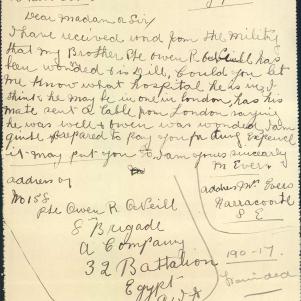 Dear Madam or Sir
I have received word from the Military
that my Brother Pte Owen R. O'Neill has
been wounded & is ill, could you let
me know what hospital he is in, I
think he may be in one in London, has his
mate sent a cable from London saying
he was well & Owen was wounded. I am
quite prepared to pay you for any expense
it may put you to, I am yours sincerely
M Evers
address of
No 158
Pte Owen R O'Neill
8 Brigade
A Company
32 Battalion
Egypt
address Mrs Evers
Narracoorte
S E
190-17.